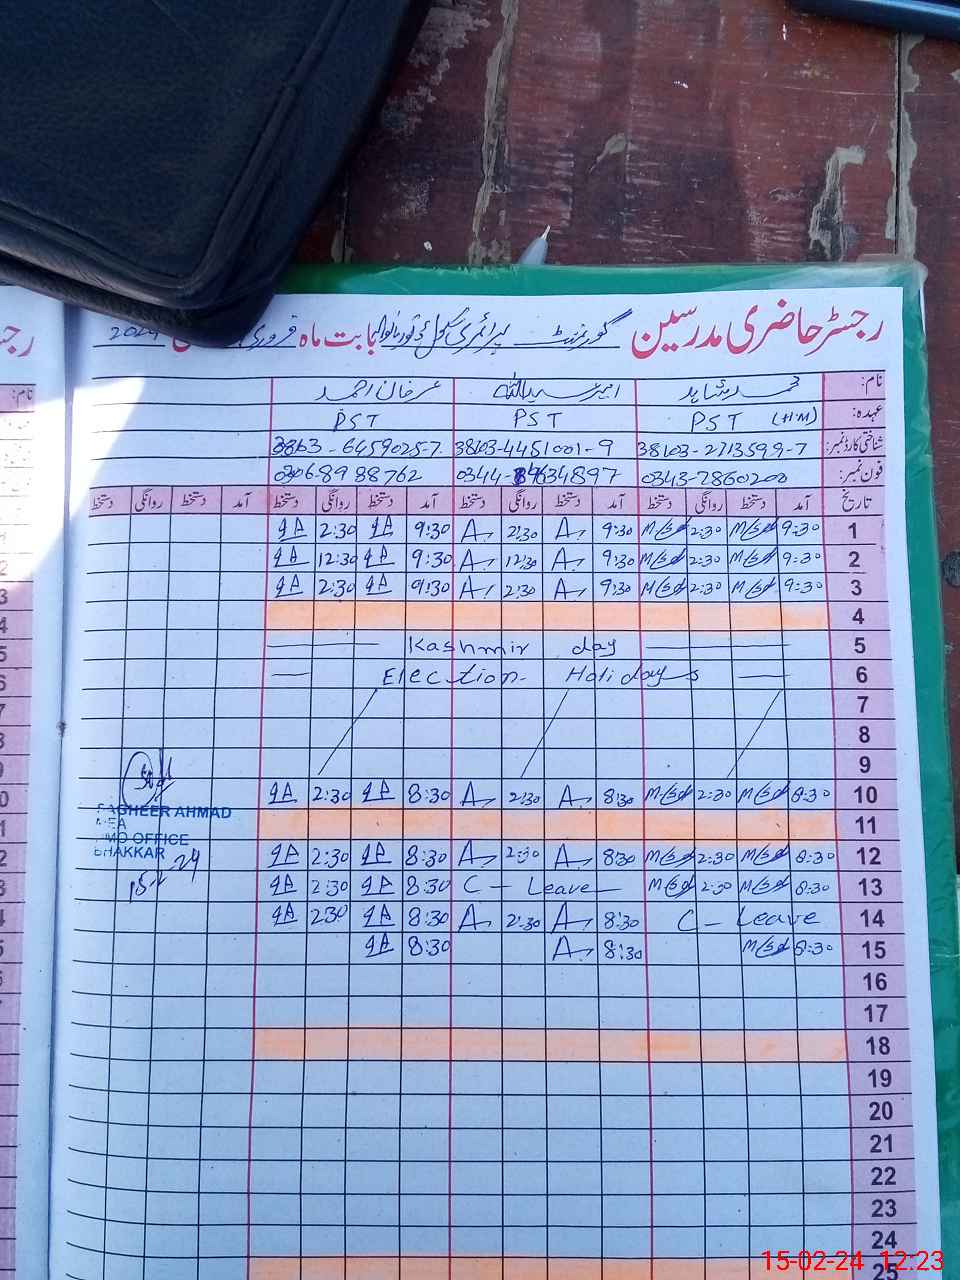 رجسٹر حاضری مدرسین گورنمنٹ پرائمری سکول بابت ماہ فروری 2024
نام: محمد شاہد امیر عبداللہ عرفان احمد
عہدہ: PST (HM) PST PST
شناختی کارڈ نمبر: 38103-2713599-7 38103-4451001-9 38103-6459025-7
فون نمبر: 0343-7860200 0344- 03068988762
تاریخ آمد دستخط روانگی دستخط آمد دستخط روانگی دستخط آمد دستخط روانگی دستخط آمد دستخط روانگی دستخط
1 9:30 2:30 9:30 A 2:30 A 9:30 2:30
2 9:30 2:30 9:30 A 12:30 A 9:30 12:30
3 9:30 2:30 9:30 A 2:30 A 9:30 2:30
4
5 Kashmir day
6 Election Holidays
7
8
9
10 8:30 2:30 8:30 A 2:30 A 8:30 2:30
11
12 8:30 2:30 8:30 A 2:30 A 8:30 2:30
13 8:30 2:30 C - Leave 8:30 2:30
14 C - Leave 8:30 A 2:30 A 8:30 230
15 8:30 8:30 A 8:30
16
17
18
19
20
21
22
23
24
25
AGHEER AHMAD
MEA
DMO OFFICE
BHAKKAR
15-2-24
15-02-24 12:23